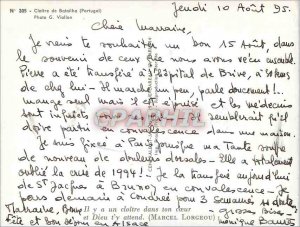 N° 305 - Cloître de Batalha (Portugal)
Photo G. Viollon
Jeudi 10 Août 95.
Chère Marraine,
Je viens te souhaiter un bon 15 Août, dans
le souvenir de ceux que nous avons vécu ensemble.
Pierre a été transféré à l'hôpital de Brive, à 50 kms
de chez lui - Il marche un peu, parle doucement !..
mange seul mais il est épuisé et les médecins
sont
semblerait qu'il
doive partir en convalescence dans une maison
Je suis fixée à Paris
Tante
de nouveau de douleurs dorsales. Elle a totalement
oublié la crise de 1994 ! Je la transfère aujourd'hui
de St Jacques à Brunoy en convalescence - Je
pars demain à Londres pour 3 semaines
Il y a un cloître dans ton cœur
et Dieu t'y attend. (MARCEL LORGEOU)
Marraine, Bonne
Fête et bon séjour en Alsace
Grosses Bises
Monique